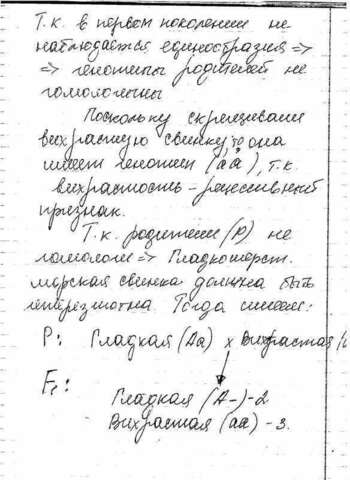 Т.к. в первом поколении не
наблюдается единообразия =>
=> генотипы родителей не
гомологичны
Поскольку скрещивали
вихрастую свинку, то она
имеет генотип (аа), т.к.
вихрастость – рецессивный
признак.
Т.к. родители (Р) не
гомологи => Гладкошерст.
морская свинка должна быть
гетерозиготна Тогда имеем:
Р: Гладкая (Аа) х Вихрастая
F₁:
Гладкая (А-) - 2
Вихрастая (аа) - 3.